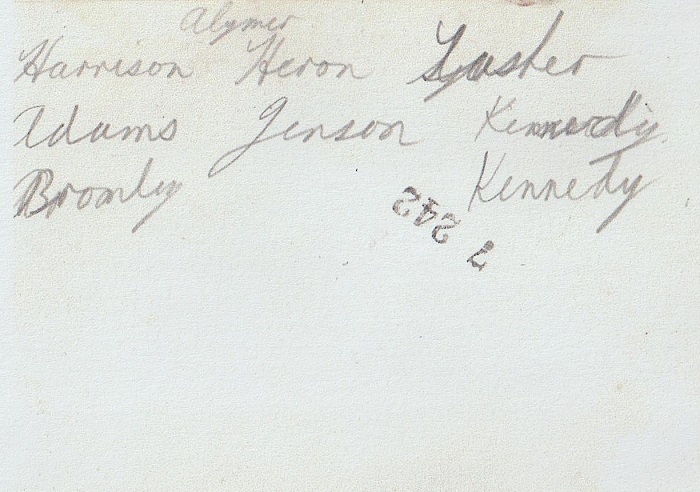 Alymer
Harrison Heron Lasher
Adams Jenson Kennedy
Bromley Kennedy
7 242